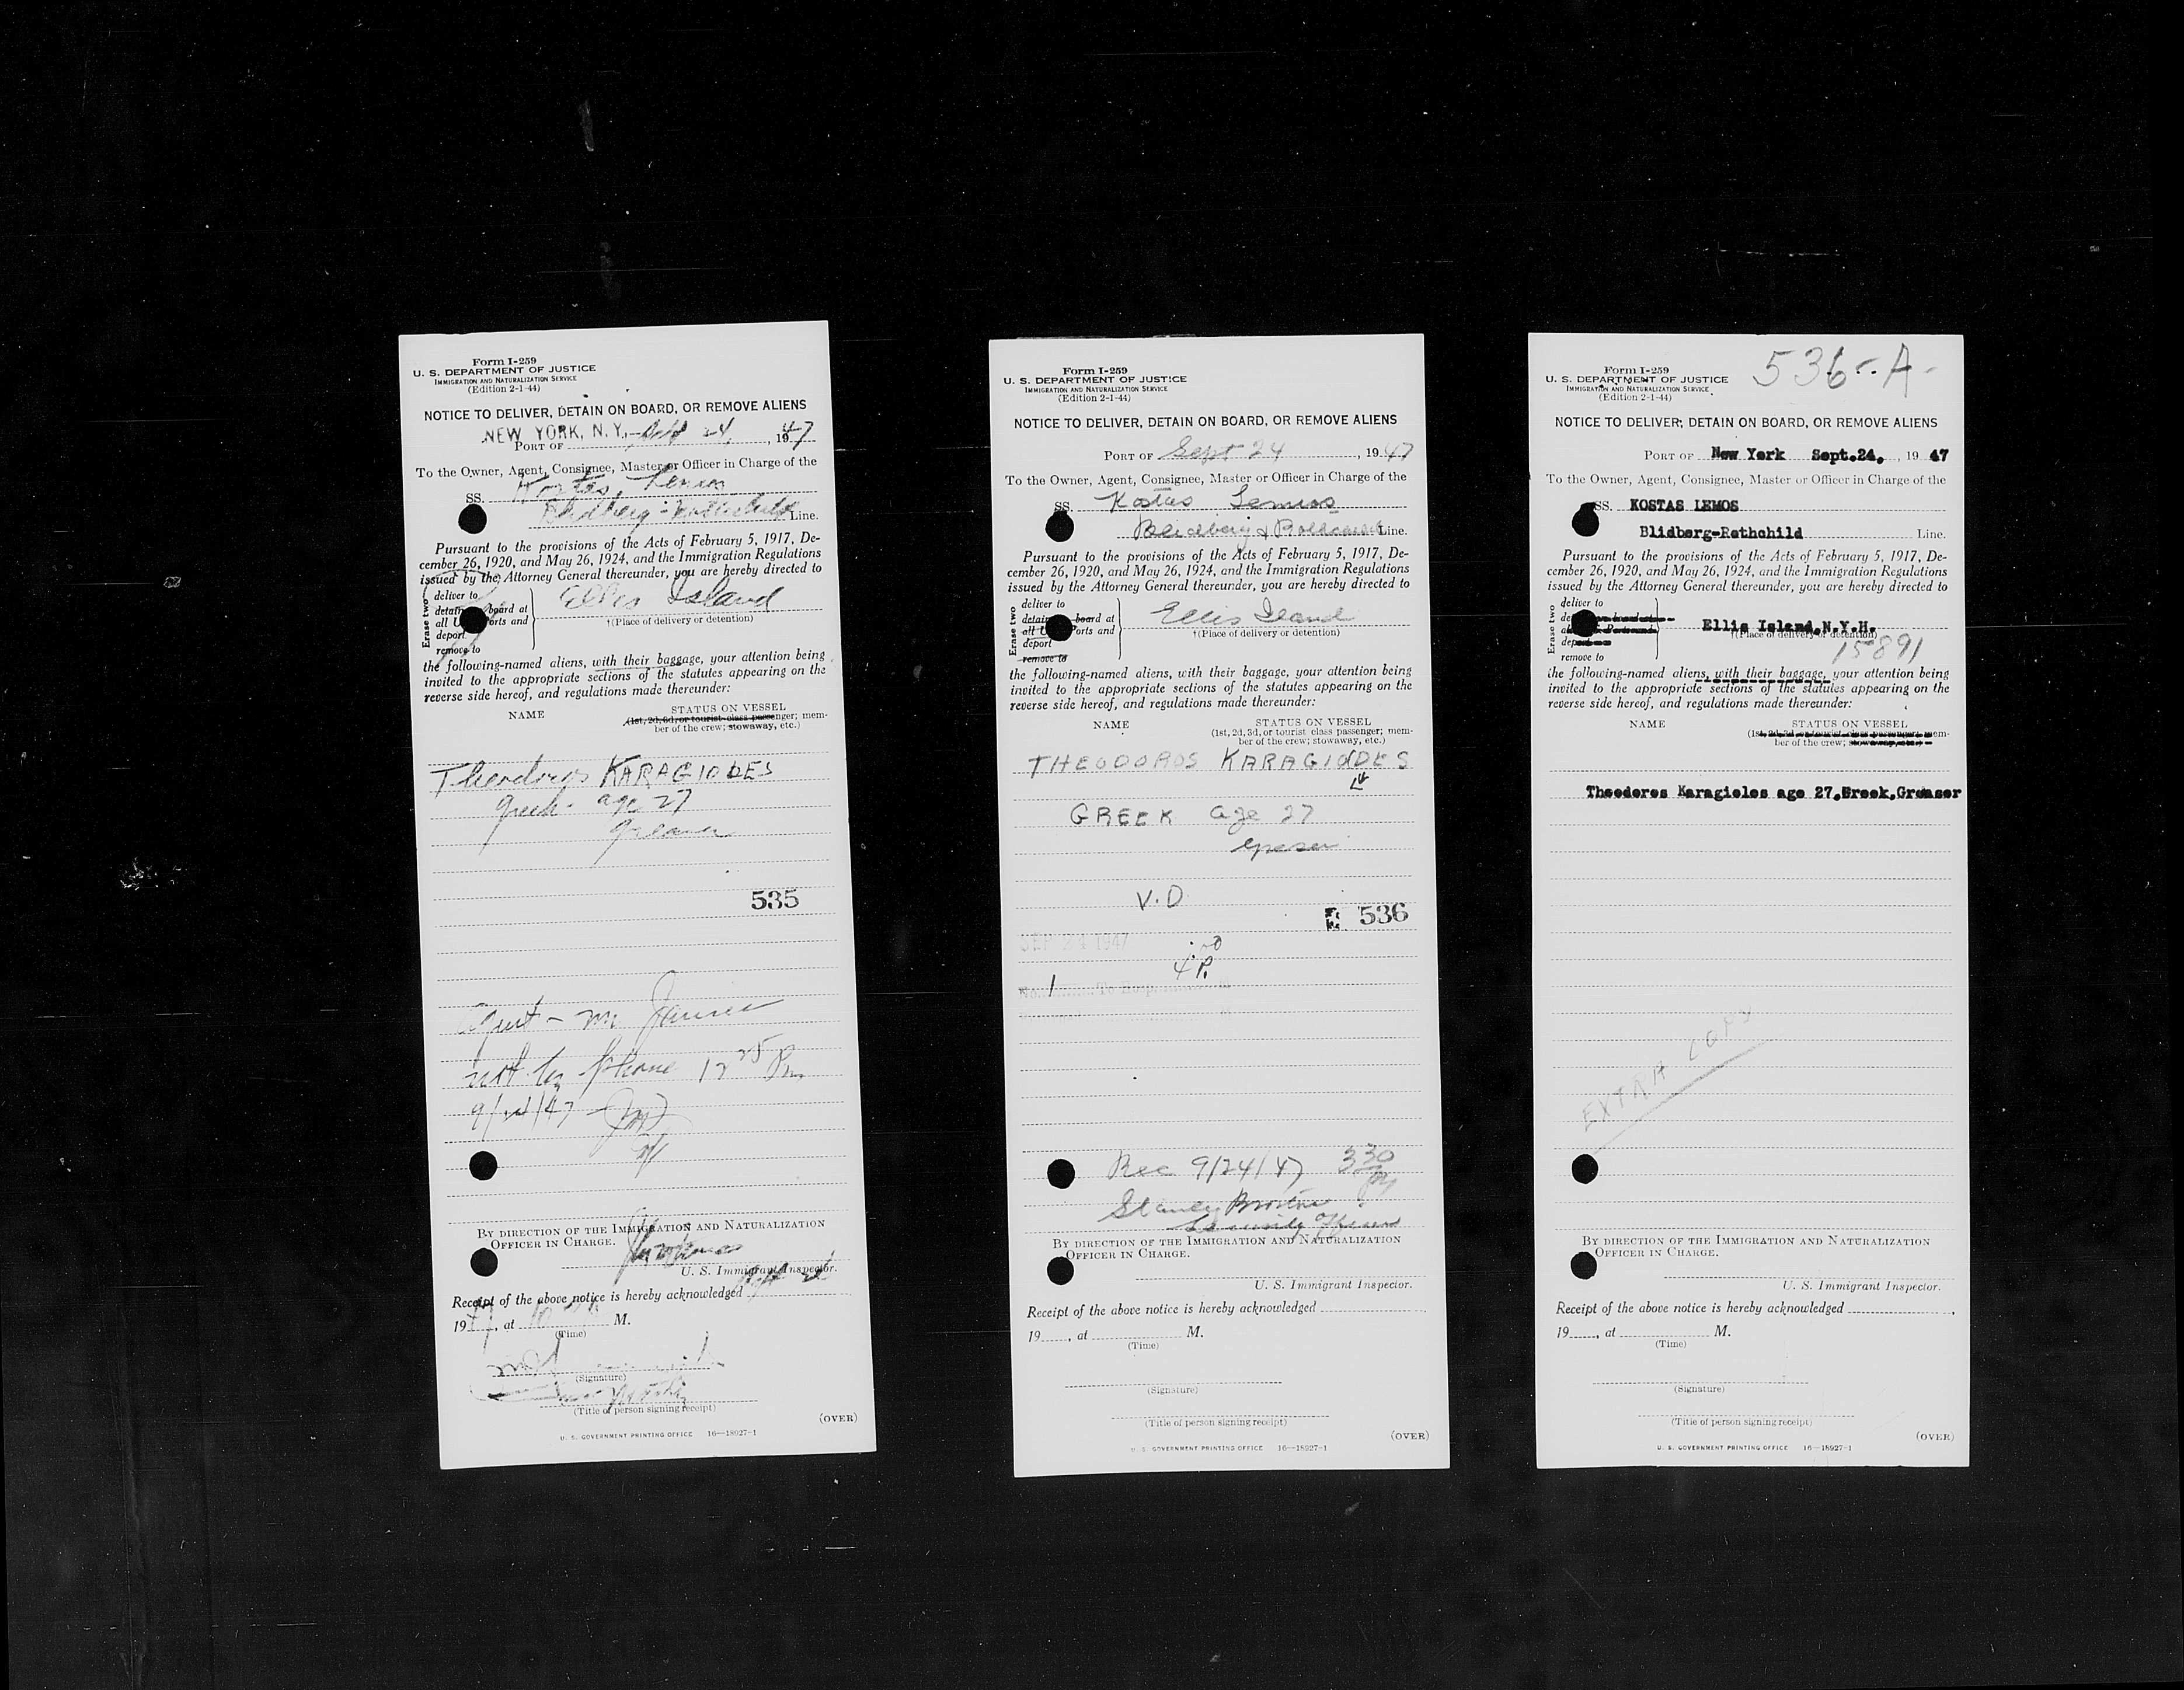 Form I-259
U. S. DEPARTMENT OF JUSTICE
IMMIGRATION AND NATURALIZATION SERVICE
(Edition 2-1-44)
NOTICE TO DELIVER, DETAIN ON BOARD, OR REMOVE ALIENS
NEW YORK, N. Y. 24, 1947
PORT OF
To the Owner, Agent, Consignee, Master or Officer in Charge of the
SS. Kostas Lemos
Line.
Pursuant to the provisions of the Acts of February 5, 1917, De-
cember 26, 1920, and May 26, 1924, and the Immigration Regulations
issued by the Attorney General thereunder, you are hereby directed to
Erase two
deliver to
detain board at
all U orts and
deport
remove to
Ellis Island
†(Place of delivery or detention)
the following-named aliens, with their baggage, your attention being
invited to the appropriate sections of the statutes appearing on the
reverse side hereof, and regulations made thereunder:
NAME STATUS ON VESSEL
(1st, 2d, 3d, or tourist class passenger; mem-
ber of the crew; stowaway, etc.)
Theodoros KARAGIODES
Greek - age 27
Greaser
535
Agent - Mr
not by phone 12 25 Pm
9/24/47
BY DIRECTION OF THE IMMIGRATION AND NATURALIZATION
OFFICER IN CHARGE.
U. S. Immigrant Inspector.
Receipt of the above notice is hereby acknowledged Sept 24
1947, at M.
(Time)
(Signature)
(Title of person signing receipt)
(OVER)
U. S. GOVERNMENT PRINTING OFFICE 16—18927-1
Form I-259
U. S. DEPARTMENT OF JUSTICE
IMMIGRATION AND NATURALIZATION SERVICE
(Edition 2-1-44)
NOTICE TO DELIVER, DETAIN ON BOARD, OR REMOVE ALIENS
PORT OF Sept 24, 1947
To the Owner, Agent, Consignee, Master or Officer in Charge of the
SS. Kostas Lemos
Line.
Pursuant to the provisions of the Acts of February 5, 1917, De-
cember 26, 1920, and May 26, 1924, and the Immigration Regulations
issued by the Attorney General thereunder, you are hereby directed to
Erase two
deliver to
detain board at
all U orts and
deport
remove to
Ellis Iland
†(Place of delivery or detention)
the following-named aliens, with their baggage, your attention being
invited to the appropriate sections of the statutes appearing on the
reverse side hereof, and regulations made thereunder:
NAME STATUS ON VESSEL
(1st, 2d, 3d, or tourist class passenger; mem-
ber of the crew; stowaway, etc.)
THEODOROS KARAGIODES
GREEK age 27
V.D
536
SEP 24 1947
4 P.
No. 1 To Hosp.
Rec 9/24/47 3 30
Stanley
Security Officer
BY DIRECTION OF THE IMMIGRATION AND NATURALIZATION
OFFICER IN CHARGE.
U. S. Immigrant Inspector.
Receipt of the above notice is hereby acknowledged
19, at M.
(Time)
(Signature)
(Title of person signing receipt)
(OVER)
U. S. GOVERNMENT PRINTING OFFICE 16—18927-1
536-A-
Form I-259
U. S. DEPARTMENT OF JUSTICE
IMMIGRATION AND NATURALIZATION SERVICE
(Edition 2-1-44)
NOTICE TO DELIVER, DETAIN ON BOARD, OR REMOVE ALIENS
PORT OF New York Sept.24, 1947
To the Owner, Agent, Consignee, Master or Officer in Charge of the
SS. KOSTAS LEMOS
Blidberg-Rothchild Line.
Pursuant to the provisions of the Acts of February 5, 1917, De-
cember 26, 1920, and May 26, 1924, and the Immigration Regulations
issued by the Attorney General thereunder, you are hereby directed to
Erase two
deliver to
remove to
Ellis Island,N.Y.H.
†(Place of delivery or detention)
15891
the following-named aliens, with their baggage, your attention being
invited to the appropriate sections of the statutes appearing on the
reverse side hereof, and regulations made thereunder:
NAME STATUS ON VESSEL
(1st, 2d, 3d, or tourist class passenger; mem-
ber of the crew; stowaway, etc.)
Theoderes Karagioles age 27,Greek,Greaser
EXTRA COPY
BY DIRECTION OF THE IMMIGRATION AND NATURALIZATION
OFFICER IN CHARGE.
U. S. Immigrant Inspector.
Receipt of the above notice is hereby acknowledged
19, at M.
(Time)
(Signature)
(Title of person signing receipt)
(OVER)
U. S. GOVERNMENT PRINTING OFFICE 16—18927-1